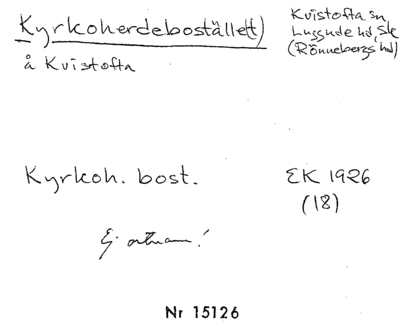 Kyrkoherdebostället)
å Kvistofta
Kvistofta sn
Luggude hd, Sk
(Rönnebergs hd)
Kyrkoh. bost.
EK 1926
(18)
Ej ortnamn!
Nr 15126